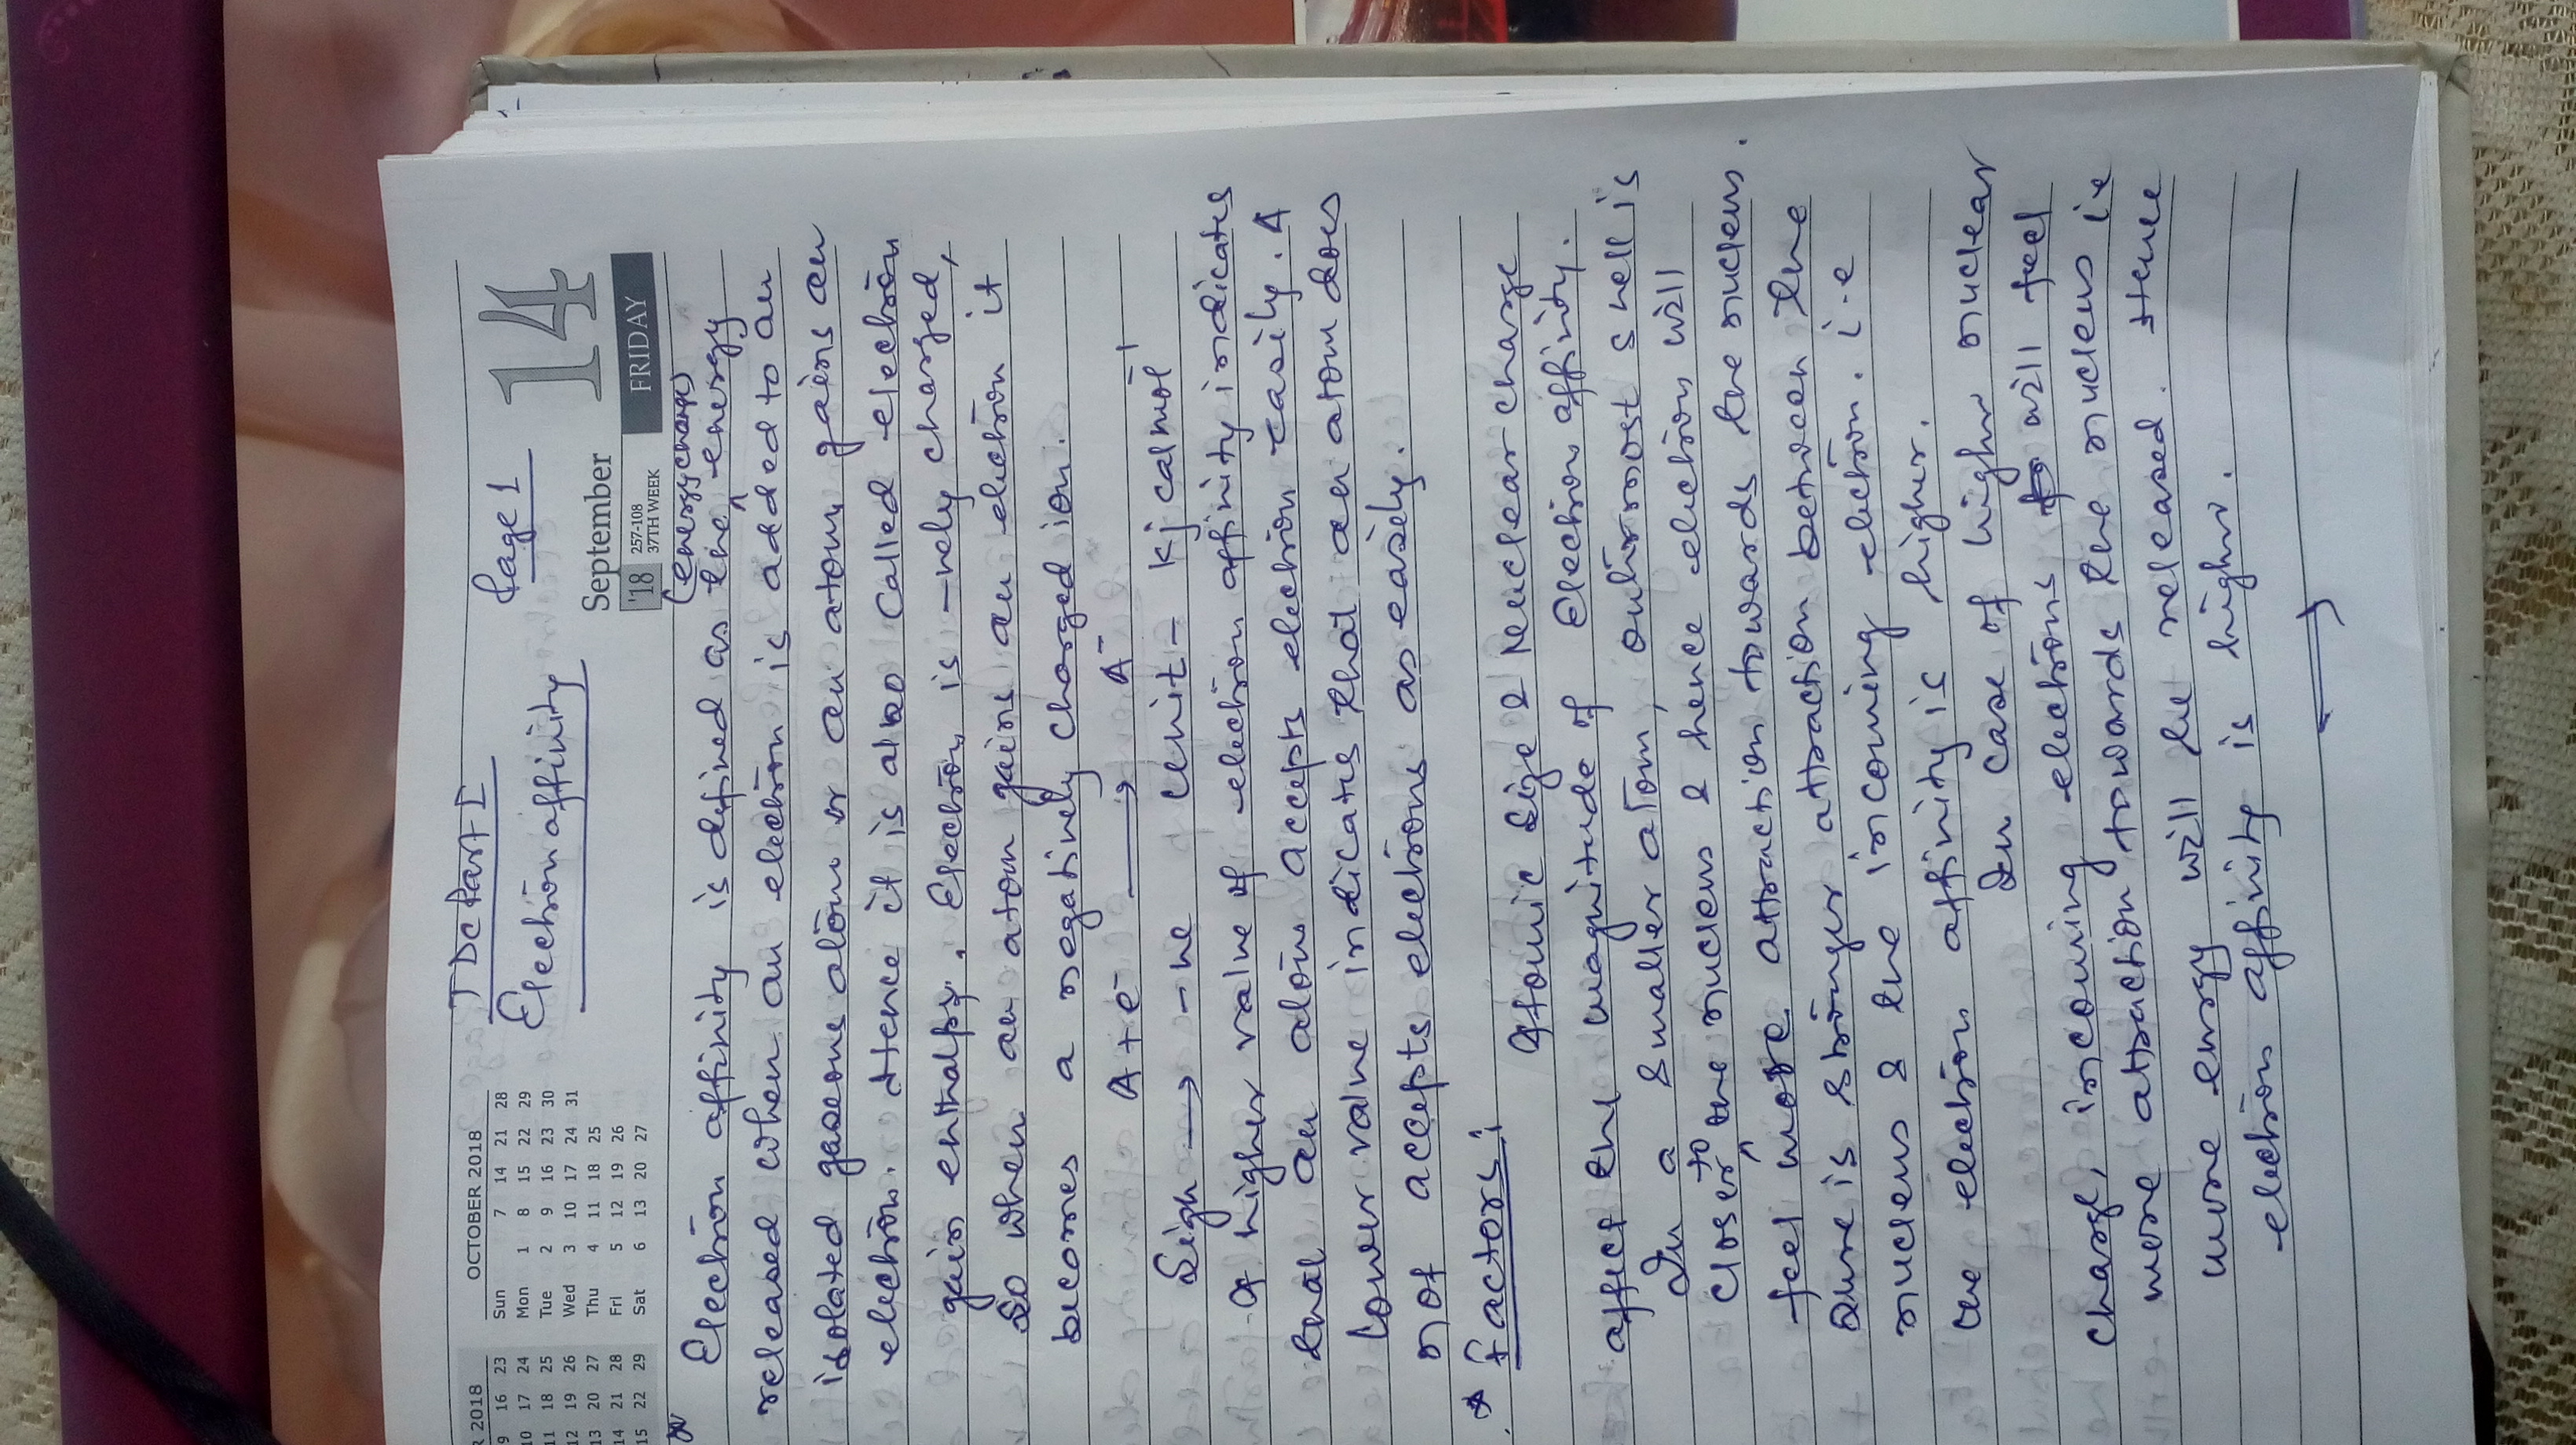 TDC Part I
Page 1
Electron affinity
September
14
'18
257-108
37TH WEEK
FRIDAY
OCTOBER 2018
Sun 7 14 21 28
Mon 1 8 15 22 29
Tue 2 9 16 23 30
Wed 3 10 17 24 31
Thu 4 11 18 25
Fri 5 12 19 26
Sat 6 13 20 27
R 2018
9 16 23
10 17 24
11 18 25
12 19 26
13 20 27
14 21 28
15 22 29
(energy change)
Electron affinity is defined as the energy
released when an electron is added to an
isolated gaseous atom or an atom gains an
electron. Hence it is also called electron
gain enthalpy. Electron is -vely charged,
So when an atom gains an electron it
becomes a negatively charged ion.
A + e⁻ ⟶ A⁻
Sign ⟶ -ve unit - kj cal mol⁻¹
A higher value of electron affinity indicates
that an atom accepts electron easily. A
lower value indicates that an atom does
not accepts electrons as easily.
* Factors: Atomic size & Nuclear charge
affect the magnitude of Electron affinity.
In a smaller atom, outermost shell is
closer to the nucleus & hence electron will
feel more attraction towards the nucleus.
There is stronger attraction between the
nucleus & the incoming electron. i.e
the electron affinity is higher.
In case of higher nuclear
charge, incoming electrons will feel
more attraction towards the nucleus ie
more energy will be released. Hence
electron affinity is higher.